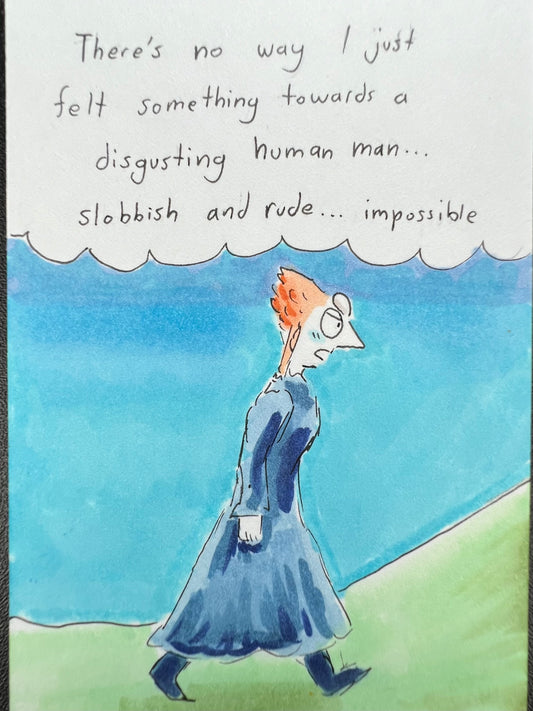 There's no way I just
felt something towards a
disgusting human man...
slobbish and rude... impossible